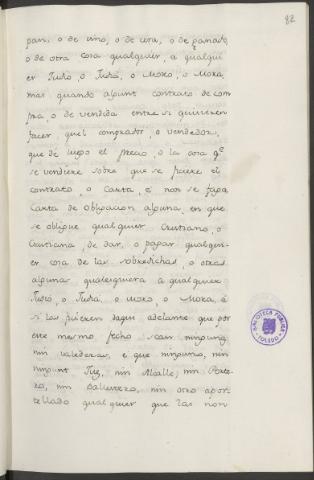 82
pan, o de vino, o de cera, o de ganado,
o de otra cosa qualquier, a qualqui
er Judio, o Judia, o Moro, o Mora,
mas quando algunt contrato de com
pra, o de vendida entre si quisieren
facer, quel comprador, o vendedor,
que de luego el precio, o la cosa q.e
se vendiere sobre que se ficiere el
contrato, o Carta, e non se faga
Carta de obligacion alguna, en que
se obligue qualquier Cristiano, o
Cristiana de dar, o pagar qualqui-
er cosa de las sobredichas, o otras
algunas qualesquiera a qualquier
Judio, o Judia, o moro, o Mora, é
si las ficieren daqui adelante que por
ese mesmo fecho sean ningunas
nin valederas, e que ninguno, nin
ningunt Juez, nin Alcalle, nin Porte
ro, nin Ballestero, nin otro apor
tellado qualquier que las non
BIBLIOTECA PUBLICA
TOLEDO